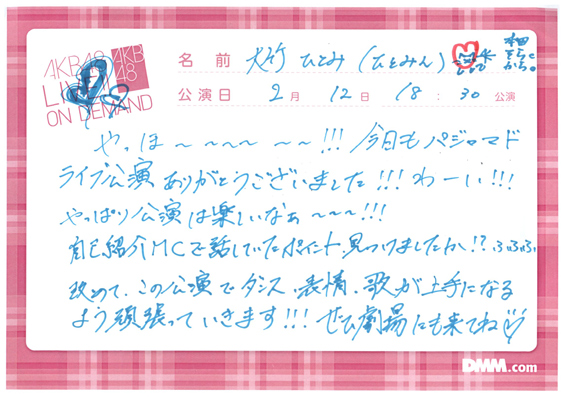 AKB48
LIVE!!
ON DEMAND
AKB
48
名前 大竹 ひとみ (ひとみん)
公演日 2月 12日 18:30 公演
やっほ〜〜〜〜 〜〜!!! 今日もパジャマド
ライブ公演ありがとうございました!!! わーい!!!
やっぱり公演は楽しいなぁ〜〜〜!!!
自己紹介MCで話していたポイント、見つけましたか!? ふふふふ
改めて、この公演でダンス、表情、歌が上手になる
よう頑張っていきます!!! ぜひ劇場にも来てね
DMM.com